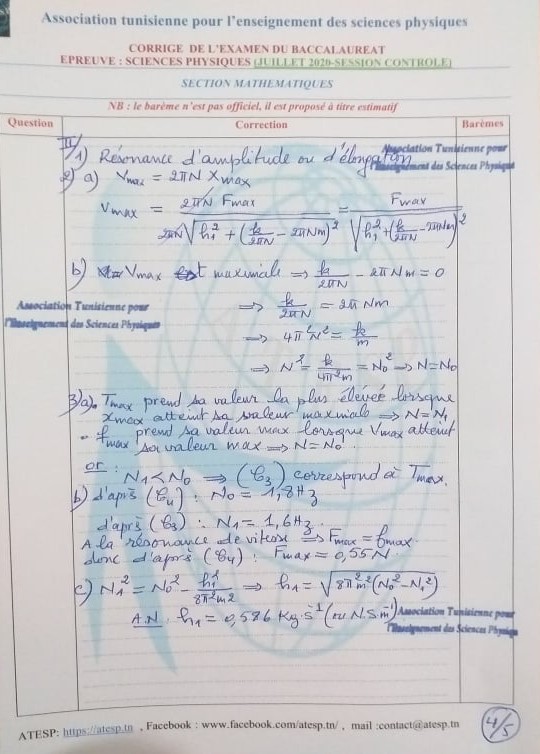 Association tunisienne pour l'enseignement des sciences physiques
CORRIGE DE L'EXAMEN DU BACCALAUREAT
EPREUVE : SCIENCES PHYSIQUES (JUILLET 2020-SESSION CONTROLE)
SECTION MATHEMATIQUES
NB : le barème n'est pas officiel, il est proposé à titre estimatif
Question Correction Barèmes
II/
1) Résonance d'amplitude ou d'élongation
Association Tunisienne pour
l'Enseignement des Sciences Physiques
2) a) Vmax = 2πN Xmax
Vmax = 2πN Fmax / 2πN√(h₁² + (k/2πN - 2πNm)²) = Fmax / √(h₁² + (k/2πN - 2πNm)²)
b) Vmax est maximale ⇒ k/2πN - 2πNm = 0
⇒ k/2πN = 2πNm
Association Tunisienne pour
l'Enseignement des Sciences Physiques
⇒ 4π²N² = k/m
⇒ N² = k/4π²m = N₀² ⇒ N = N₀
3) a) • Tmax prend sa valeur la plus élevée lorsque
Xmax atteint sa valeur maximale ⇒ N = N₁
• fmax prend sa valeur max lorsque Vmax atteint
sa valeur max ⇒ N = N₀.
or : N₁ < N₀ ⇒ (C₃) correspond à Tmax.
b) d'après (C₄) : N₀ = 1,8 Hz
d'après (C₃) : N₁ = 1,6 Hz.
A la résonance de vitesse ⇒ Fmax = fmax
donc d'après (C₄) : Fmax = 0,55 N.
c) N₁² = N₀² - h₁²/8π²m² ⇒ h₁ = √(8π²m²(N₀² - N₁²))
A.N. h₁ = 0,586 Kg.s⁻¹ (ou N.S.m⁻¹)
Association Tunisienne pour
l'Enseignement des Sciences Physiques
ATESP: https://atesp.tn , Facebook : www.facebook.com/atesp.tn/ , mail :contact@atesp.tn
4/5